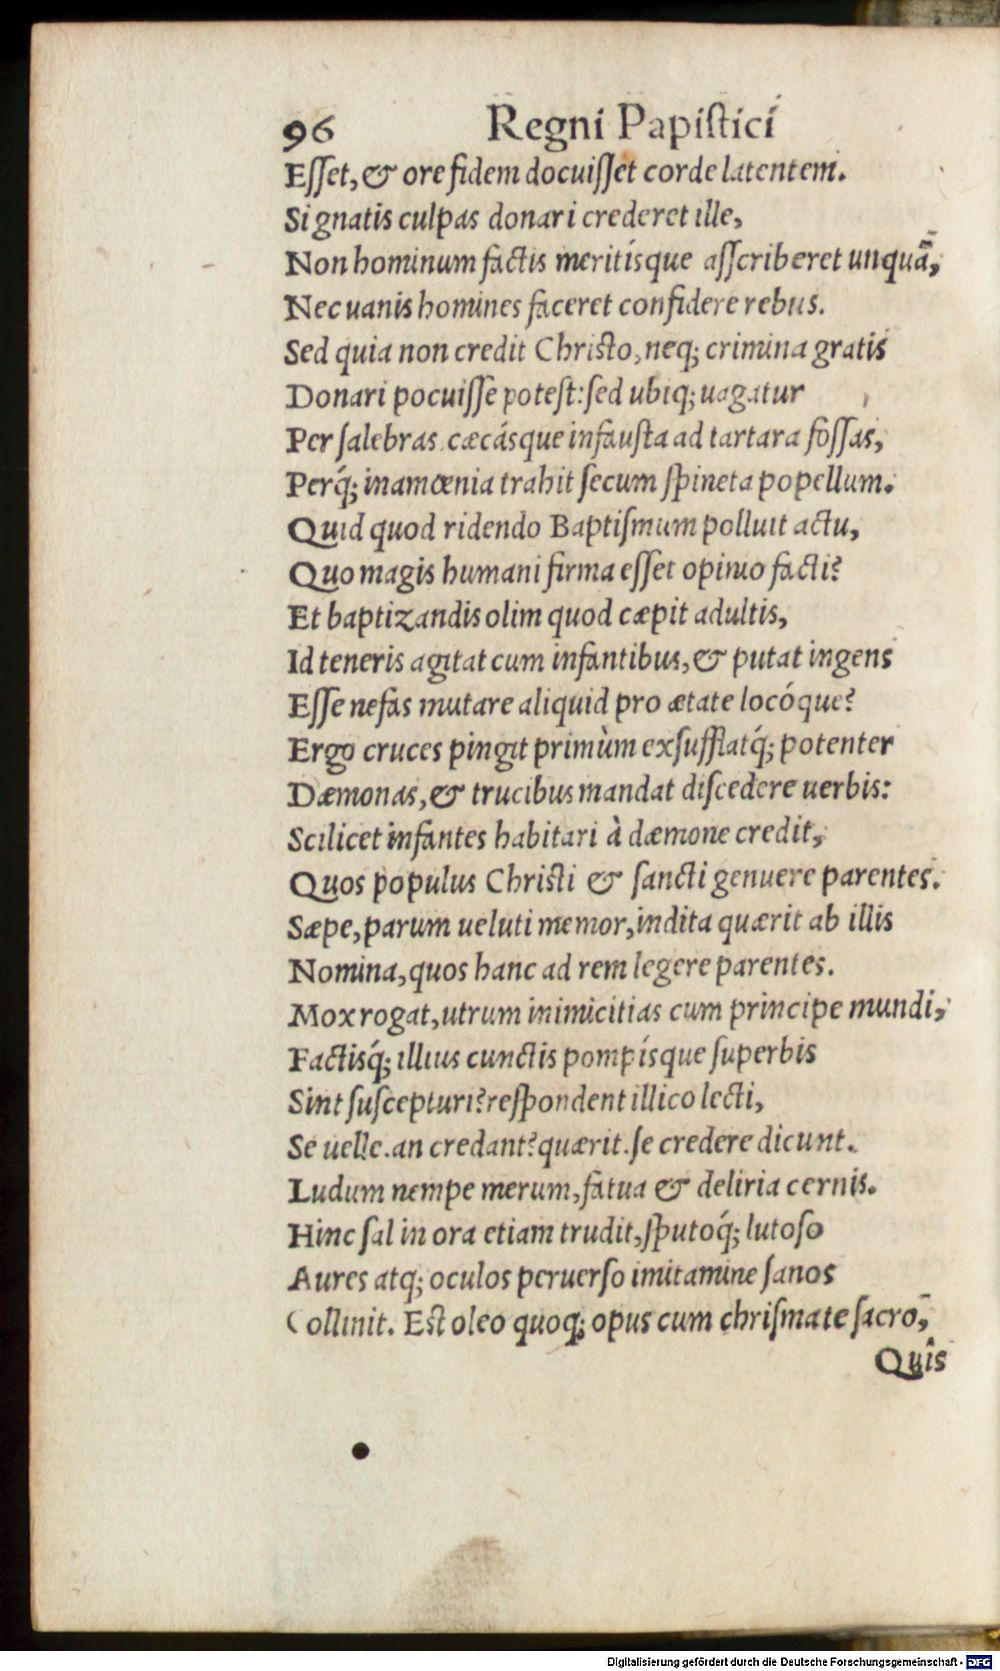 96 Regni Papiſtici
Eſſet, & ore fidem docuiſſet corde latentem.
Si gnatis culpas donari crederet ille,
Non hominum factis meritísque aſſcriberet unquã,
Nec uanis homines faceret confidere rebus.
Sed quia non credit Chriſto, neq; crimina gratis
Donari pocuiſſe poteſt: ſed ubiq; uagatur
Per ſalebras cæcásque infauſta ad tartara foſſas,
Perq́; inamœnia trahit ſecum ſpineta popellum.
Quid quod ridendo Baptiſmum polluit actu,
Quo magis humani firma eſſet opinio facti?
Et baptizandis olim quod cæpit adultis,
Id teneris agitat cum infantibus, & putat ingens
Eſſe nefas mutare aliquid pro ætate locóque?
Ergo cruces pingit primùm exſufflatq́; potenter
Dæmonas, & trucibus mandat diſcedere uerbis:
Scilicet infantes habitari à dæmone credit,
Quos populus Chriſti & ſancti genuere parentes.
Sæpe, parum ueluti memor, indita quærit ab illis
Nomina, quos hanc ad rem legere parentes.
Mox rogat, utrum inimicitias cum principe mundi,
Factisq́; illius cunctis pompísque ſuperbis
Sint ſuſcepturi? reſpondent illico lecti,
Se uelle. an credant? quærit. ſe credere dicunt.
Ludum nempe merum, fatua & deliria cernis.
Hinc ſal in ora etiam trudit, ſputoq́; lutoſo
Aures atq; oculos peruerſo imitamine ſanos
Collinit. Eſt oleo quoq; opus cum chriſmate ſacro,
Quis
Digitalisierung gefördert durch die Deutsche Forschungsgemeinschaft - DFG